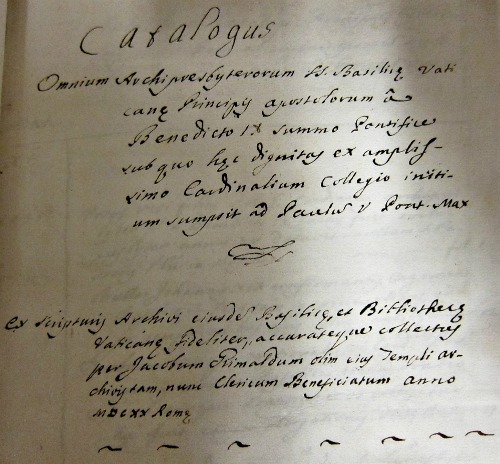 Catalogus
Omnium Archipresbyterorum SS. Basilicę Vati
canę Principis apostolorum â
Benedicto IX summo Pontifice
sub quo hęc dignitas ex amplis-
simo Cardinalium Collegio initi-
um sumpsit ad Paulũ V Pont. Max
ex scripturis Archivi eiusdẽ Basilicę, et Bibliothecę
Vaticanę fideliter, accurateq;ue collectus
per Jacobum Grimaldum olim eius Templi ar-
chivistam, nunc Clericum Beneficiatum anno
MDCXX Romę